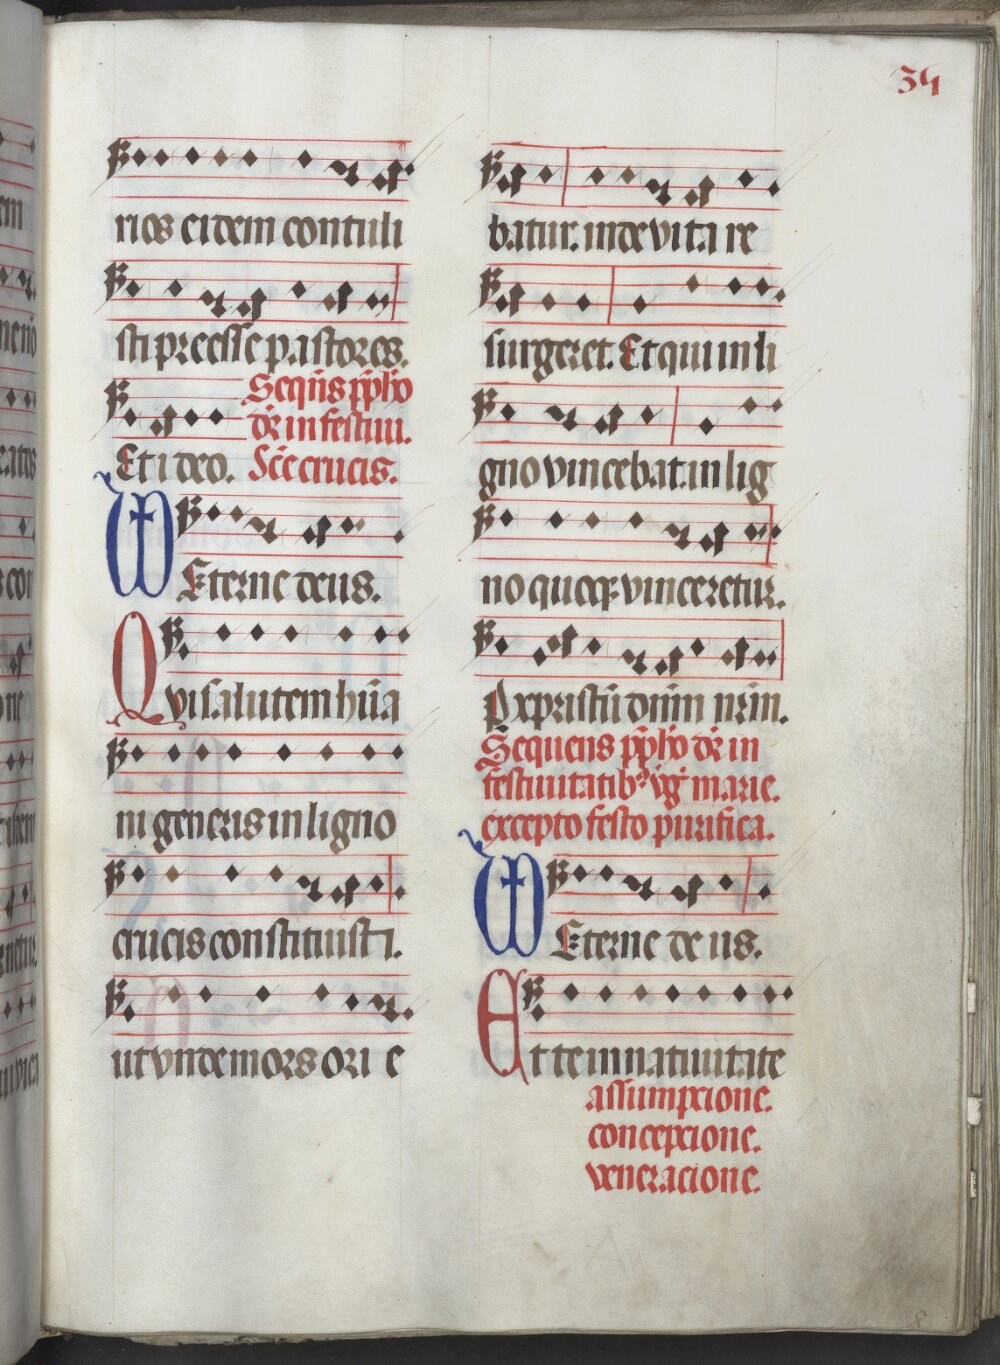 34
rios eidem contuli
sti preesse pastores.
Sequēs p̄p̄bo
dr̄ in festiui.
Et ideo. Scē crucis.
Eterne deus.
Qui salutem hūa
ni generis in ligno
crucis constituisti.
ut vnde mors ori e
batur. inde vita re
surgeret. Et qui in li
gno vincebat. in lig
no quoqꝫ vinceretur.
Per xpristū dn̄m nr̄m.
Sequens p̄p̄bo dr̄ in
festiuitatibꝫ vḡ marie.
excepto festo purifica.
Eterne deus.
Et te in natiuitate
assumpcione.
concepcione.
veneracione.